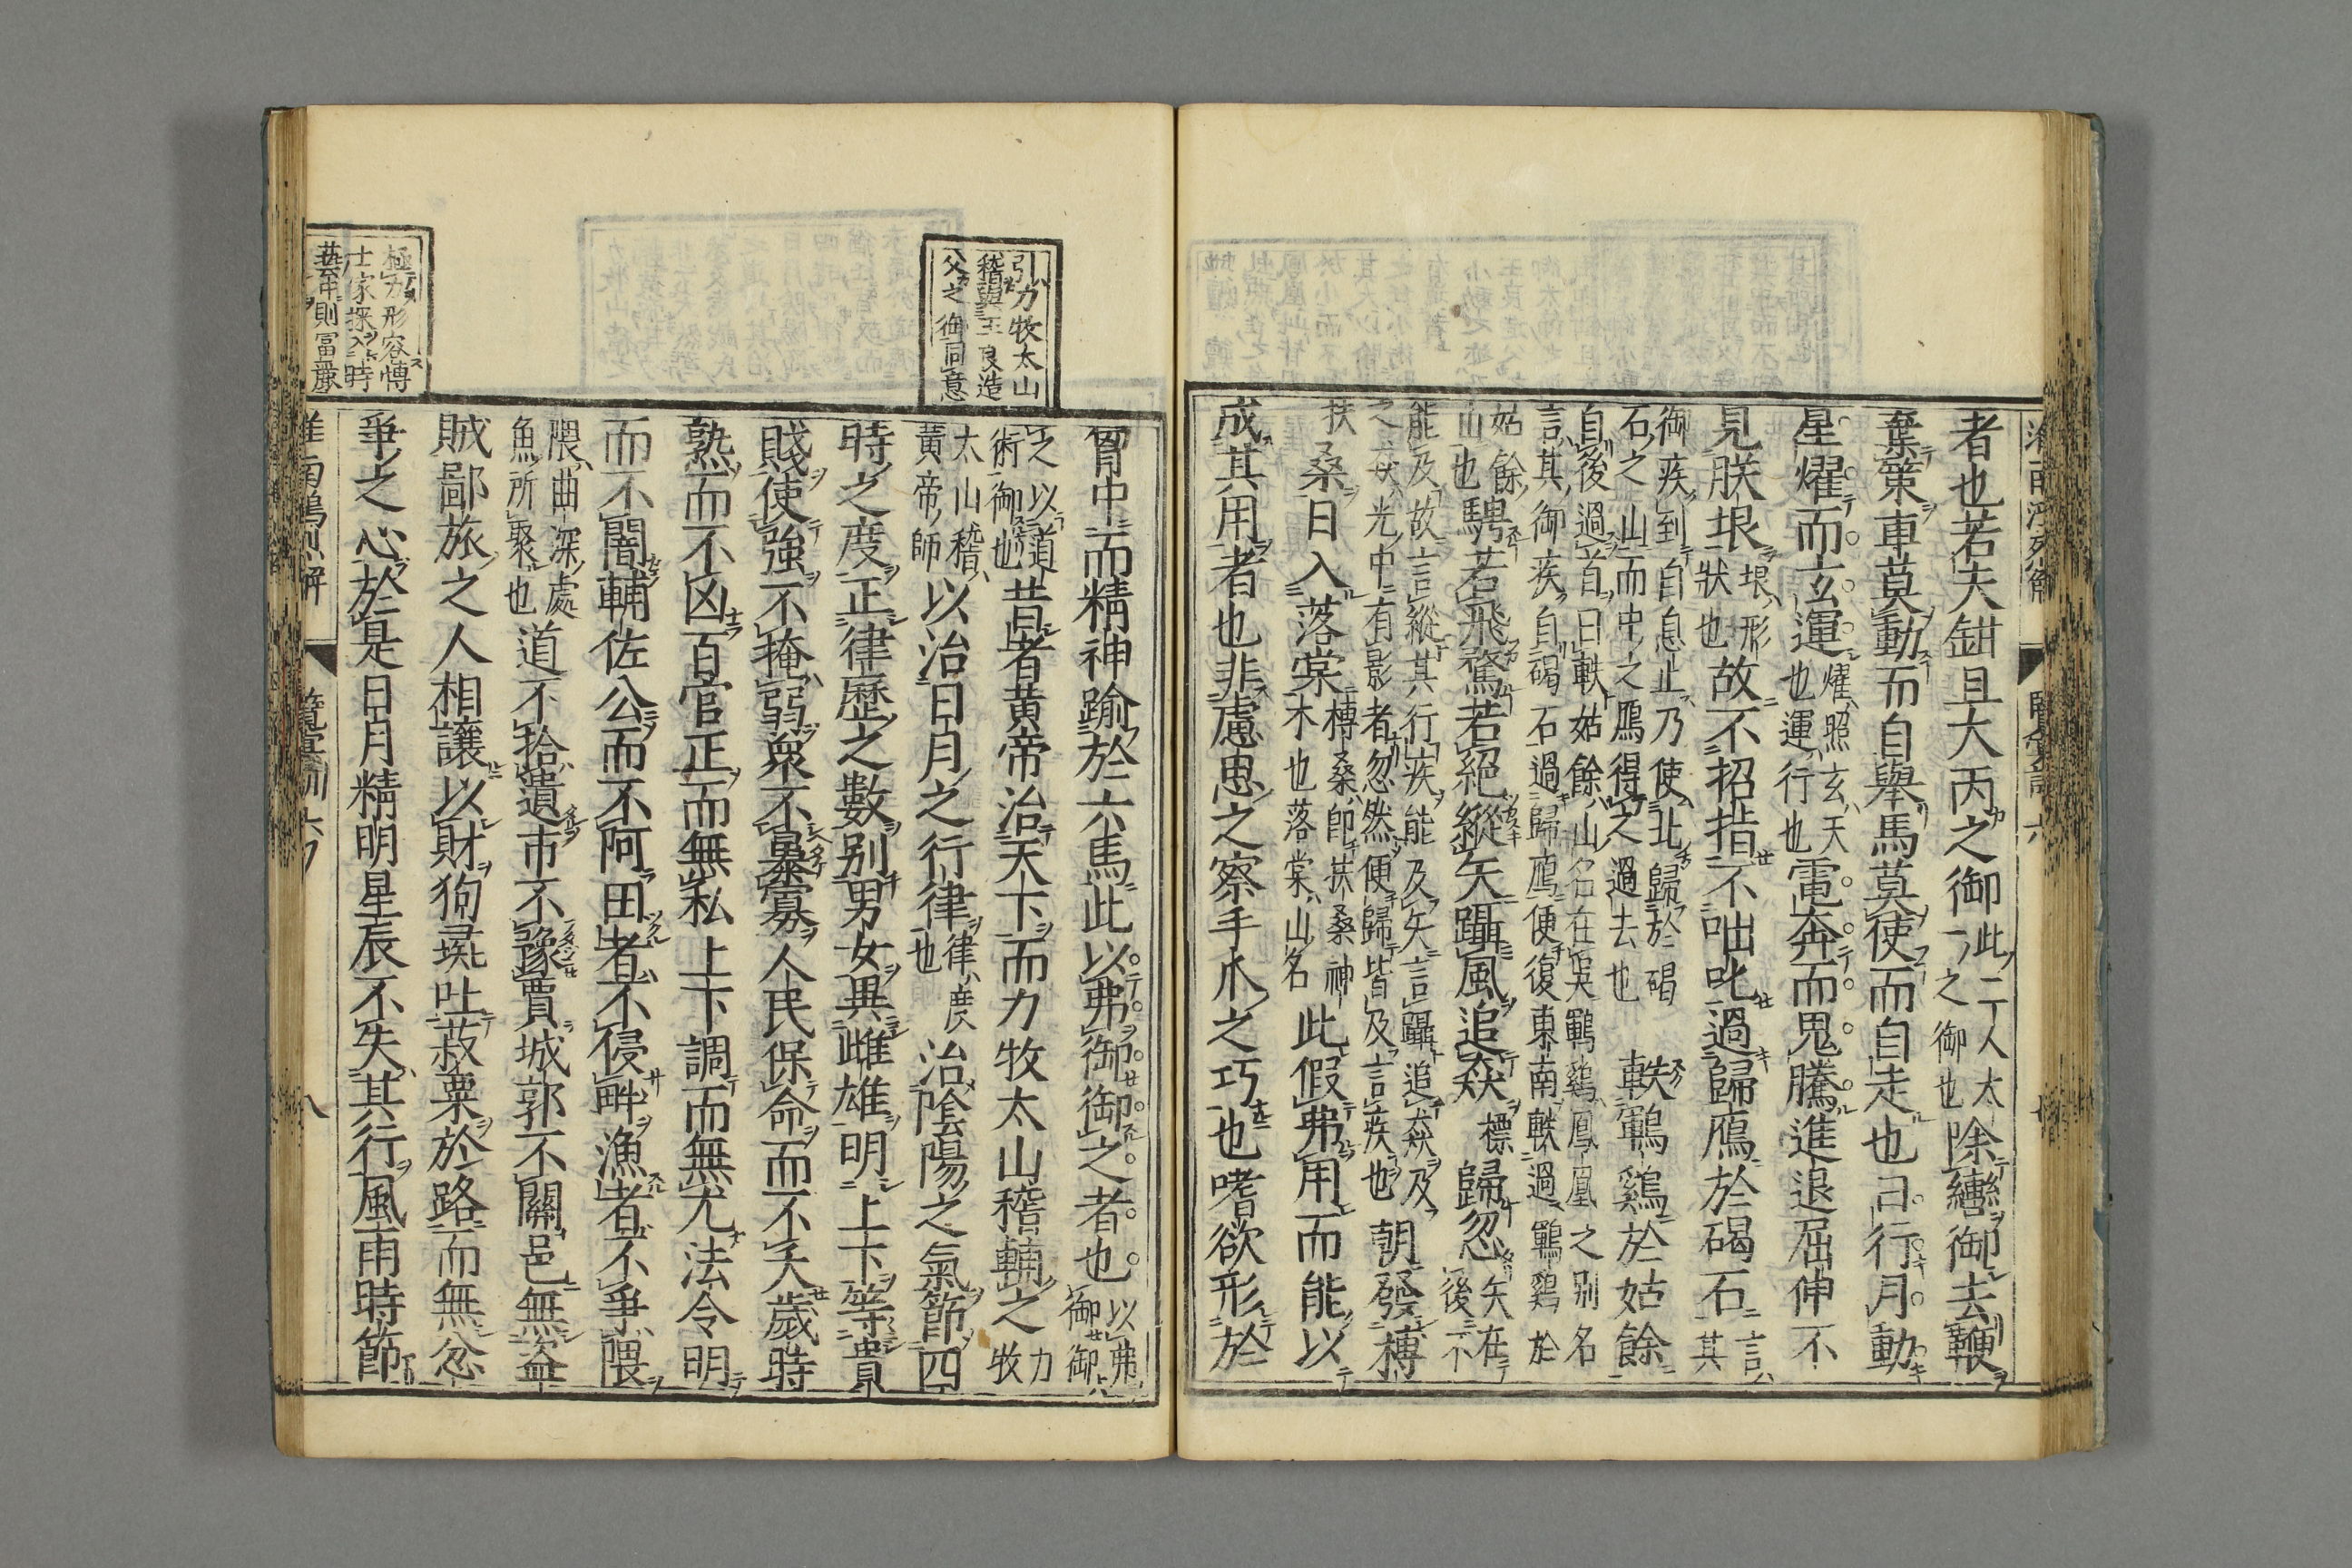 者也若夫鉗且大丙之御此二人太一之御也除轡御去鞭
棄策車莫動而自舉馬莫使而自走也日行月動
星燿而玄運燿照玄天也運行也電奔而鬼騰進退屈伸不
見朕垠垠形狀也故不招指不咄叱過歸鴈於碣石言其
御疾到自息止乃使北歸於碣石之山而中之鴈得之過去也軼鶤雞於姑餘
自後過首曰軼姑餘山名在吳鶤雞鳳凰之别名言其御疾自碣石過歸鴈便復東南軼過鶤雞於
姑餘山也騁若飛騖若絕縱矢躡風追猋標歸忽矢在後不
能及故言縱其行疾能及矢言躡追猋及之焱光中有影者忽然便歸皆及言疾也朝發榑
桑日入落棠榑桑卽扶桑神木也落棠山名此假弗用而能以
成其用者也非慮思之察手爪之巧也嗜欲形於
胷中而精神踰於六馬此以弗御御之者也以弗御御
之以道術御也昔者黄帝治天下而力牧太山稽輔之力牧
太山稽黄帝師以治日月之行律律度也治陰陽之氣節四
時之度正律歷之數别男女異雌雄明上下等貴
賤使強不掩弱衆不暴寡人民保命而不夭歲時
熟而不凶百官正而無私上下調而無尤法令明
而不闇輔佐公而不阿田者不侵畔漁者不爭隈
隈曲深處魚所聚也道不拾遺市不豫賈城郭不關邑無盜
賊鄙旅之人相讓以財狗彘吐菽粟於路而無忿
爭之心於是日月精明星辰不失其行風雨時節
引力牧太山
稽與王良造
父之御同意
極力形容博
士家採入時
藝中則冨嚴
淮南鴻烈解
覽冥訓六
八